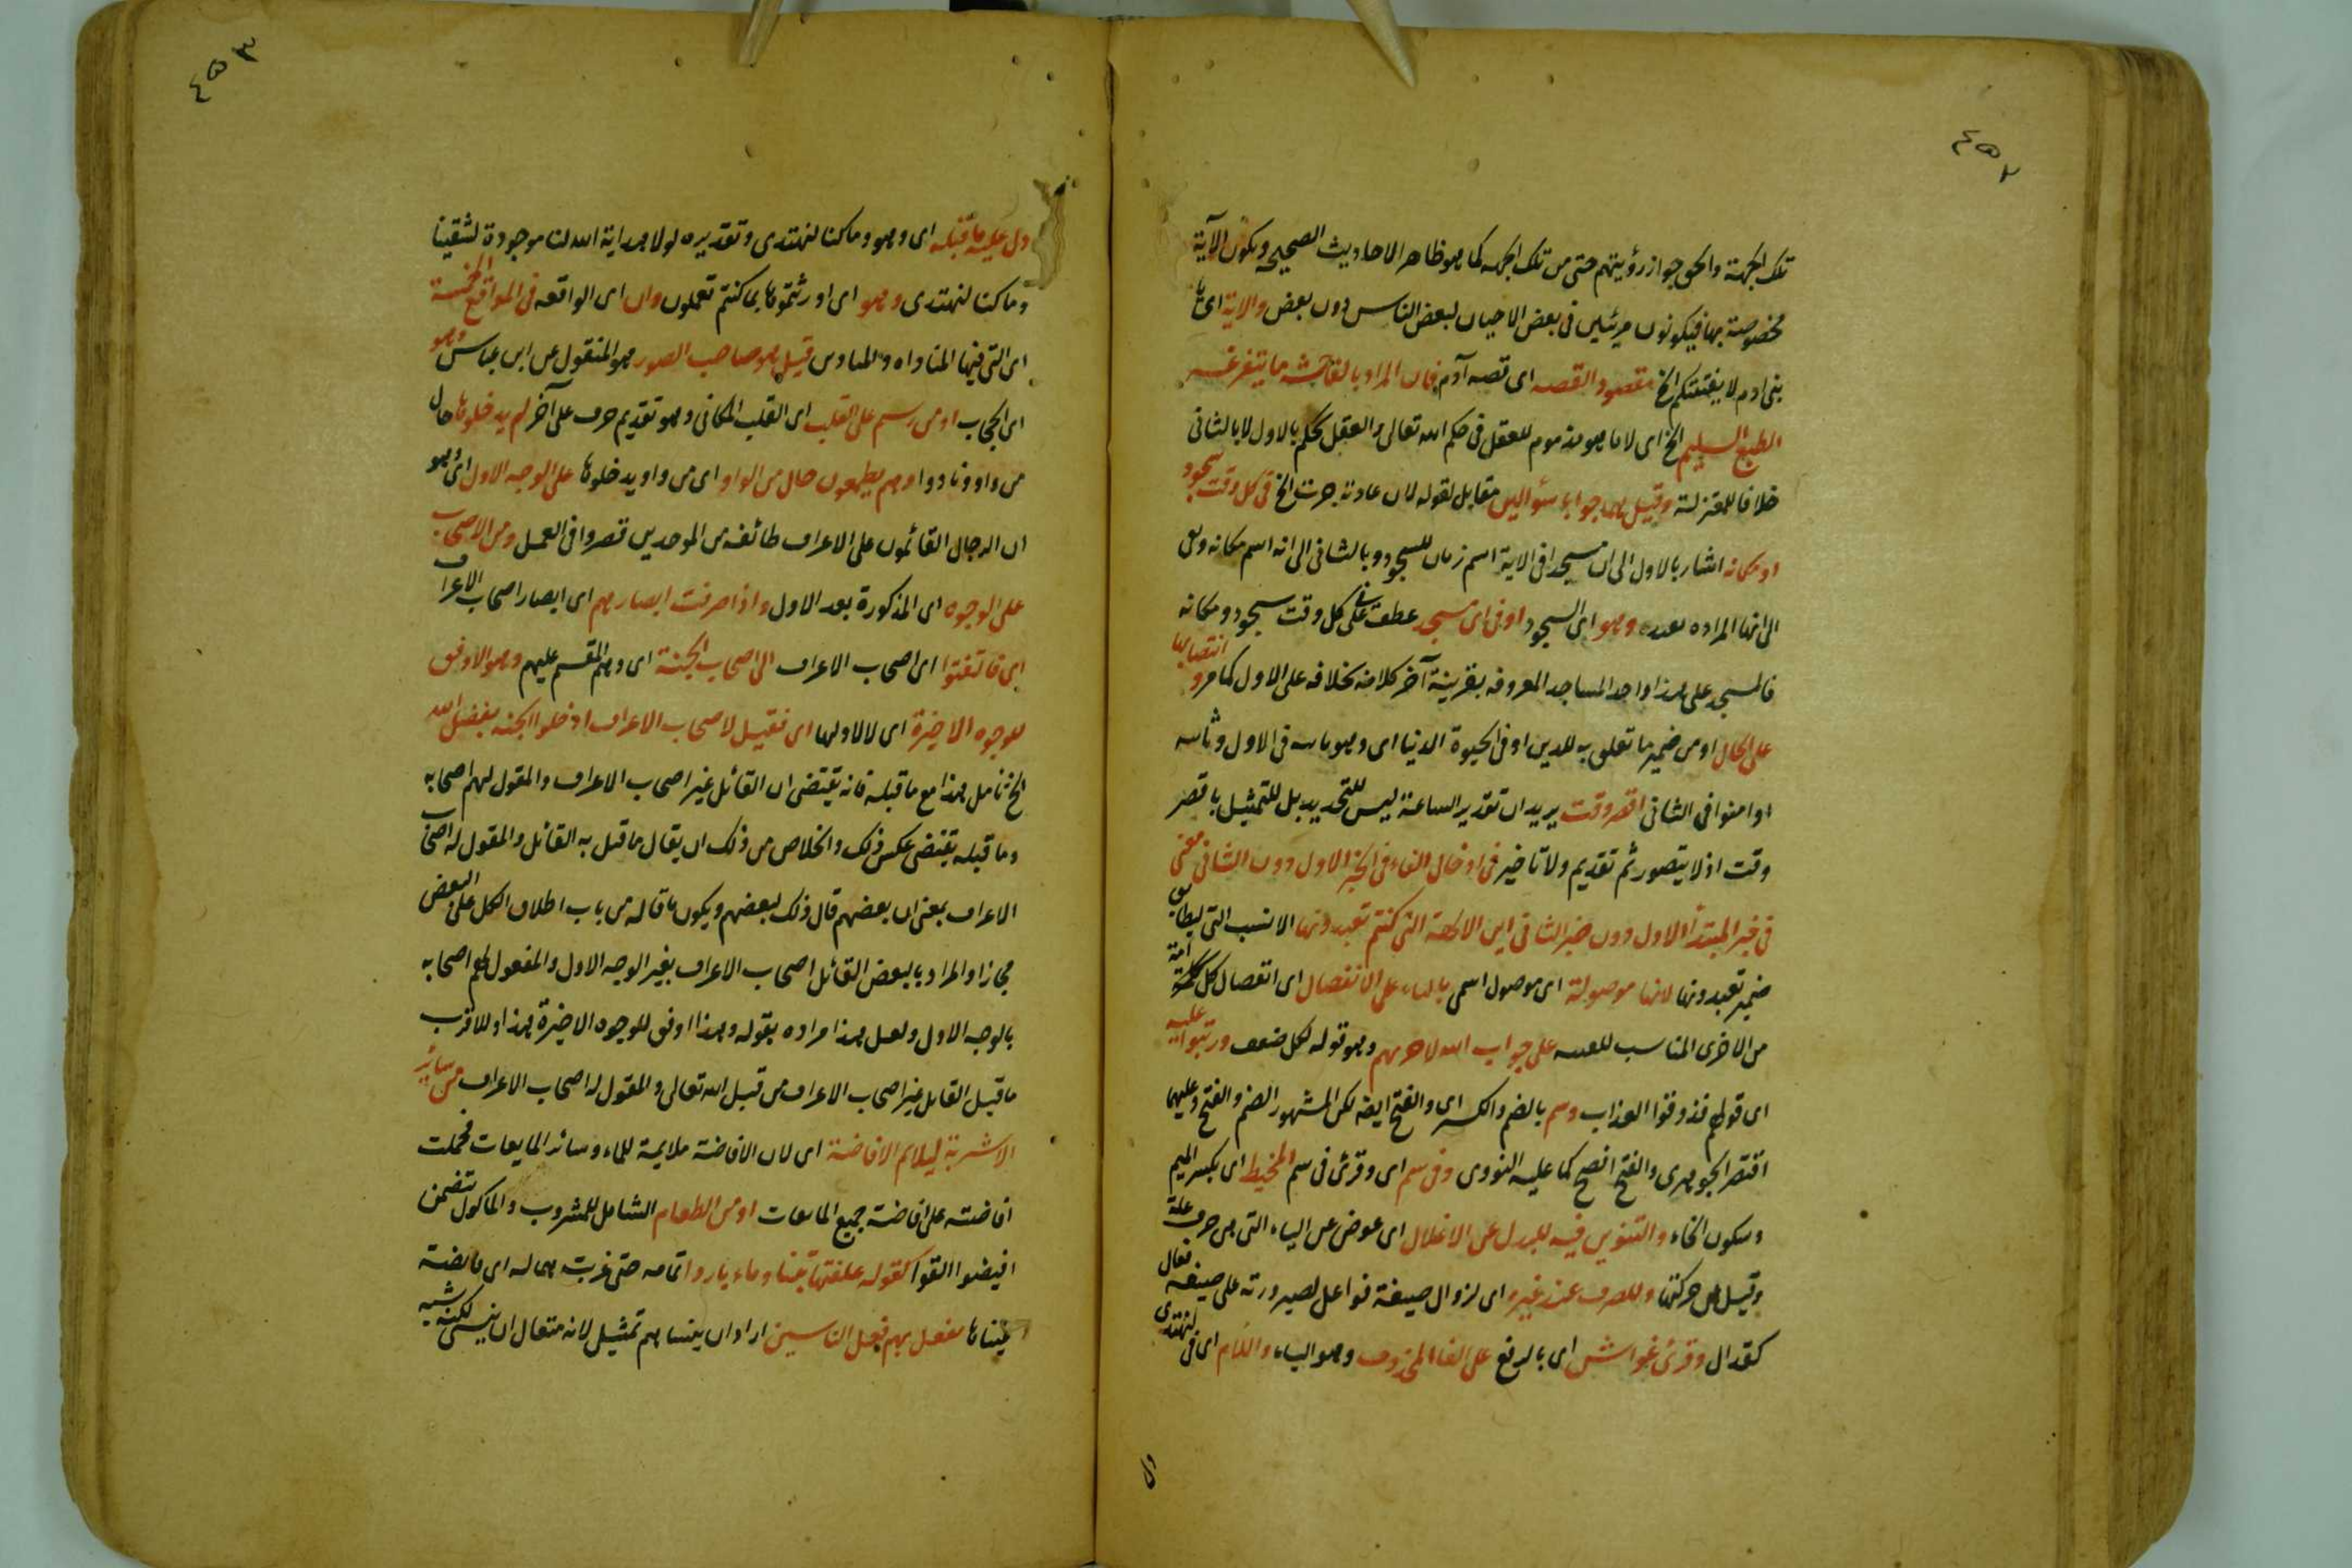 ٤٥٢
تلك الجهة والحق جواز رؤيتهم حتى من تلك الجهة كما هو ظاهر الاحاديث الصحيحة ويكون الآية
مخصوصة بها فيكونون مرئيين في بعض الاحيان لبعض الناس دون بعض والاية اى يا
بنى ادم لا يفتننكم الخ مقصود القصه اى قصه آدم فان المراد بالفاحشة ما يتنفر عنه
الطبع السليم الخ اى لا ما هو مذموم للعقل في حكم الله تعالى والعقل يحكم بالاول لا بالثانى
خلافا للمعتزلة وقيل هما جوابا سؤالين مقابل لقوله لان عادته جرت الخ في كل وقت سجود
او مكانه اشار بالاول الى ان مسجد في الاية اسم زمان للسجود وبالثانى الى انه اسم مكانه
الى انها المراده وهو اى السجود او في اى مسجد عطف على في كل وقت سجود ومكانه
فالمسجد على هذا واحد المساجد المعروفه بقرينة آخر كلامه بخلافه على الاول كما مر وانتصابها
على الحال او من ضمير ما تعلق به للذين او في الحيوة الدنيا اى وهو في الاول
او امنوا في الثانى اقصر وقت يريد ان تقدير الساعة ليس للتحديد بل للتمثيل باقصر
وقت اذ لا يتصور ثم تقديم ولا تاخير في ادخال الفاء في الخبر الاول دون الثانى معنى
في خبر المبتدأ الاول دون خبر الثانى اين الالهة التى كنتم تعبدونها الانسب التى ليطابق
ضمير تعبدونها لانها موصولة اى موصول اسمى على الانفصال اى انفصال كل امة
من الاخرى المناسب على جواب الله لاخريهم وهو قوله لكل ضعف ورتبوا عليه
اى قولهم فذوقوا العذاب وسم بالضم والكسر اى والفتح ايضه لكن المشهور الضم والفتح وعليهما
اقتصر الجوهرى والفتح افصح كما عليه النووى وفي سم اى وقرئ في سم المخيط اى بكسر الميم
وسكون الخاء والتنوين فيه للبدل عن الاعلال اى عوض عن الياء التى هى حرف علة
وقيل هى حركتها وللصرف عند غيره اى لزوال صيغة فواعل لصيرورته على صيغة فعال
كقذال وقرئ غواش اى بالرفع على الغاء المحذوف وهو الياء واللام اى في لنهتدى
٤٥٣
دل عليه ما قبله اى وهو وما كنا لنهتدى وتقديره لولا هداية الله لنا موجودة لشقينا
وما كنا لنهتدى وهو اى اورثتموها بما كنتم تعملون وان اى الواقعه في المواقع الخمسة
اى التى فيها المناداه والتاذين قيل هو صاحب الصور هو المنقول عن ابن عباس وهو
اى الحجاب او من رسم على القلب اى القلب المكانى وهو تقديم حرف على آخر لم يدخلوها حال
من واو ونادوا وهم يطمعون حال من الواو اى من واو يدخلوها على الوجه الاول اى وهو
ان الرجال القائمون على الاعراف طائفه من الموحدين قصروا في العمل ومن الاصحاب
على الوجوه اى المذكورة بعد الاول واذا صرفت ابصارهم اى ابصار اصحاب الاعراف
اى فالتفتوا اى اصحاب الاعراف الى اصحاب الجنة اى وهم المقسم عليهم وهو الاوفق
للوجوه الاخيرة اى لا لاولها اى فقيل لاصحاب الاعراف ادخلوا الجنة بفضل الله
الخ تامل هذا مع ما قبله فانه يقتضى ان القائل غير اصحاب الاعراف والمقول لهم اصحابه
وما قبله يقتضى عكس ذلك والخلاص من ذلك ان يقال ما قبل به القائل والمقول له اصحاب
الاعراف بمعنى ان بعضهم قال ذلك لبعضهم ويكون ما قاله من باب اطلاق الكل على البعض
مجازا والمراد بالبعض القائل اصحاب الاعراف بغير الوجه الاول والمقول لهم اصحابه
بالوجه الاول ولعل هذا مراده بقوله وهذا اوفق للوجوه الاخيرة هذا وللاقرب
ما قيل القايل غير اصحاب الاعراف من قبل الله تعالى والمقول له اصحاب الاعراف من سائر
الاشربة ليلائم الافاضة اى لان الافاضة ملايمة للماء وسائر المايعات فحملت
افاضته على افاضة جميع المايعات او من الطعام الشامل للمشروب والماكول تتضمن
افيضوا القوا كقوله علفتها تبنا وماء باردا تمامه حتى غدت همالة اى فائضة
عيناها نفعل بهم فعل الناسين اراد ان ينساهم تمثيل لانه متعال ان ينسى لكنه شبه